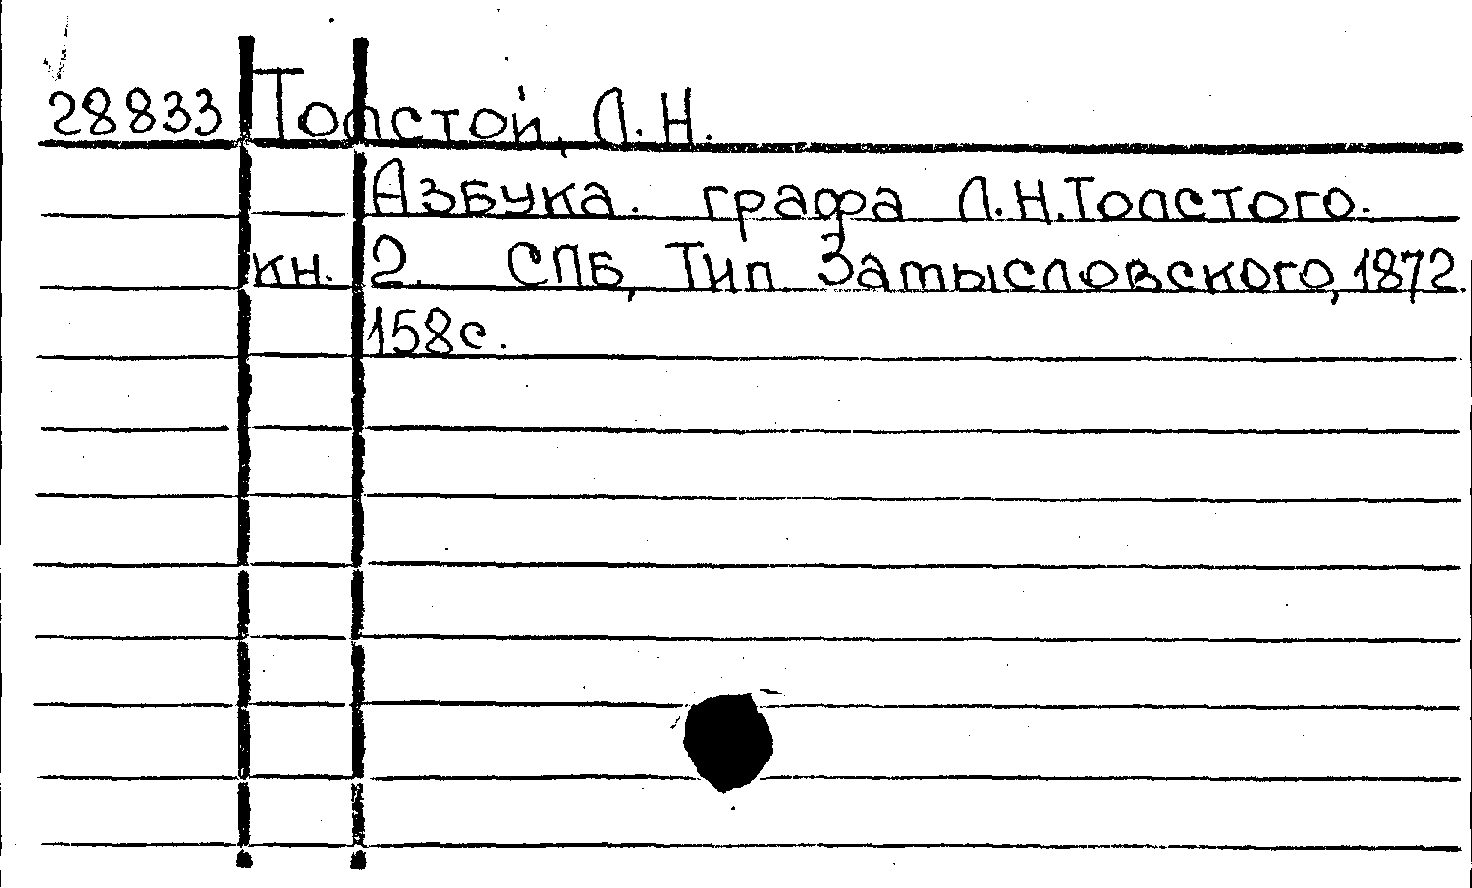 28833 Толстой, Л. Н.
Азбука. графа Л.Н.Толстого.
кн. 2. СПБ, Тип Замысловского, 1872.
158с.